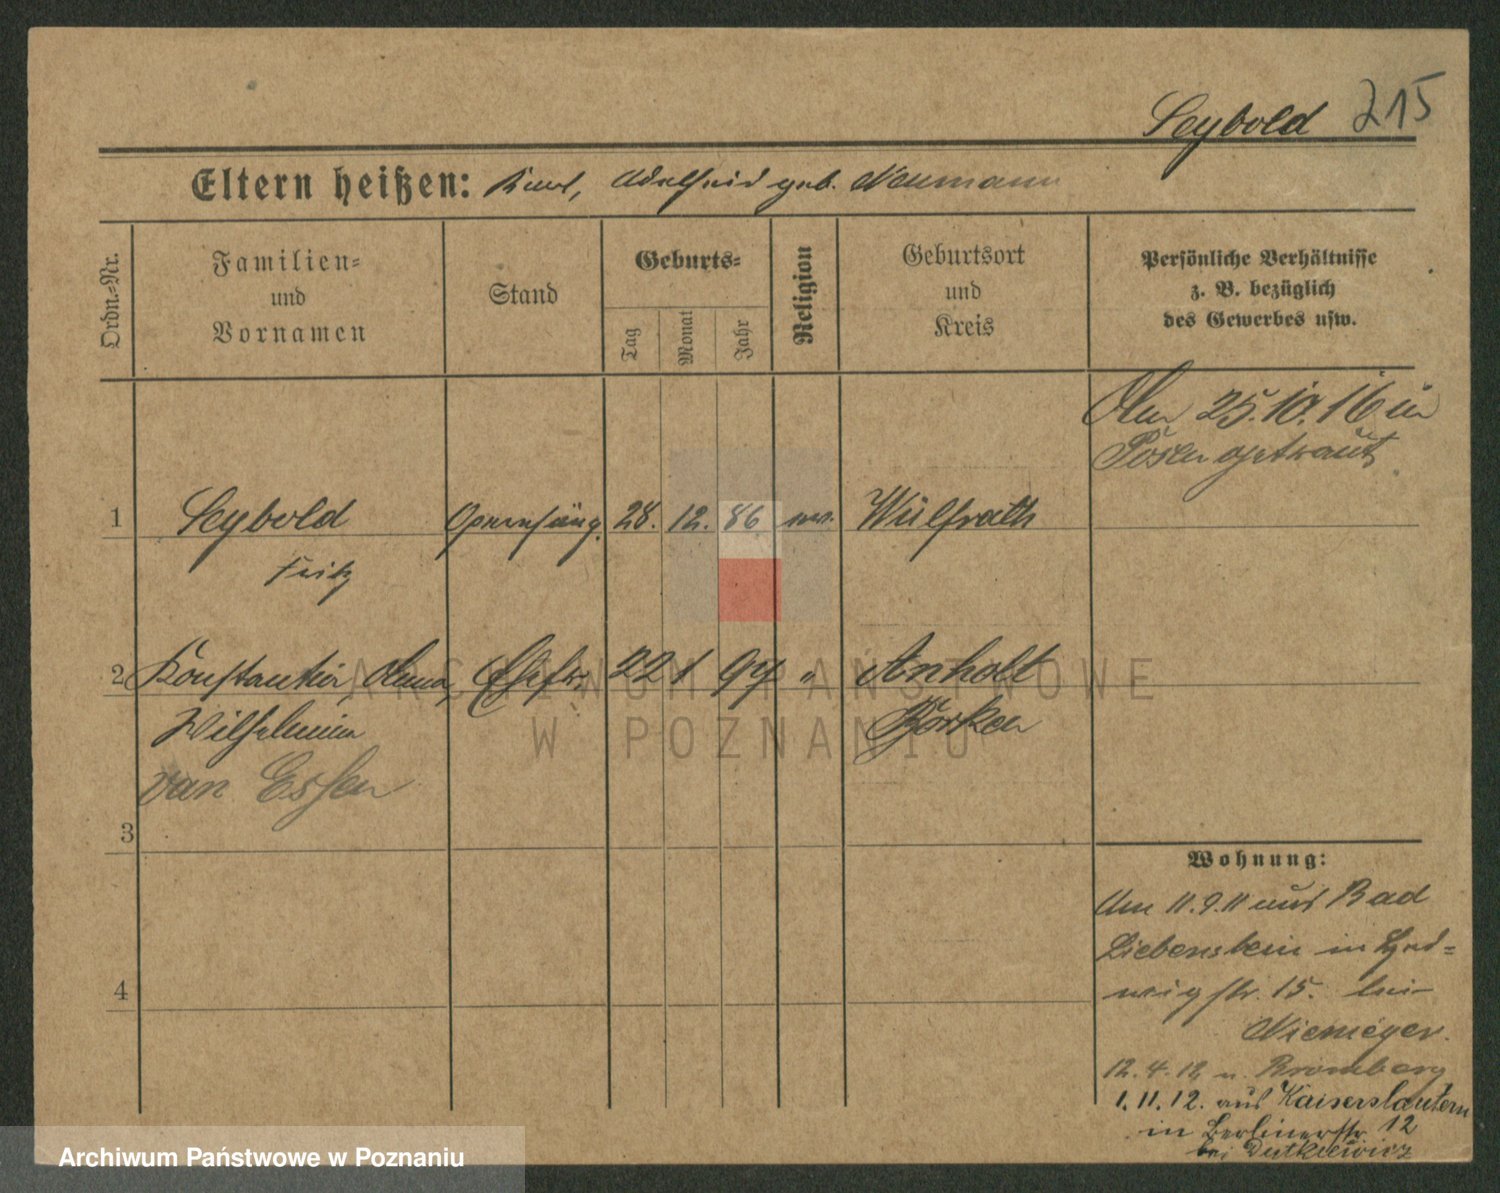 Seybold 215
Eltern heißen: Karl, Adelheid geb. Neumann
Ordn.=Nr.
Familien=
und
Vornamen
Stand
Geburts=
Tag
Monat
Jahr
Religion
Geburtsort
und
Kreis
Persönliche Verhältnisse
z. B. bezüglich
des Gewerbes usw.
Am 25.10.16 in
Posen getraut.
1 Seybold Opernsäng. 28. 12. 86 ev. Wülfrath
Fritz
2 Konstantia, Anna, Ehefr. 22 1 94 " Anholt
Wilhelmine Borken
van Essen
3
4
Wohnung:
Am 11.9.11 aus Bad
Liebenstein in Hed=
wigstr. 15. bei
Niemeyer.
12.4.12 n. Bromberg
1.11.12. aus Kaiserslautern
in Berlinerstr 12
bei Dutkiewicz
ARCHIWUM PAŃSTWOWE
W POZNANIU
Archiwum Państwowe w Poznaniu